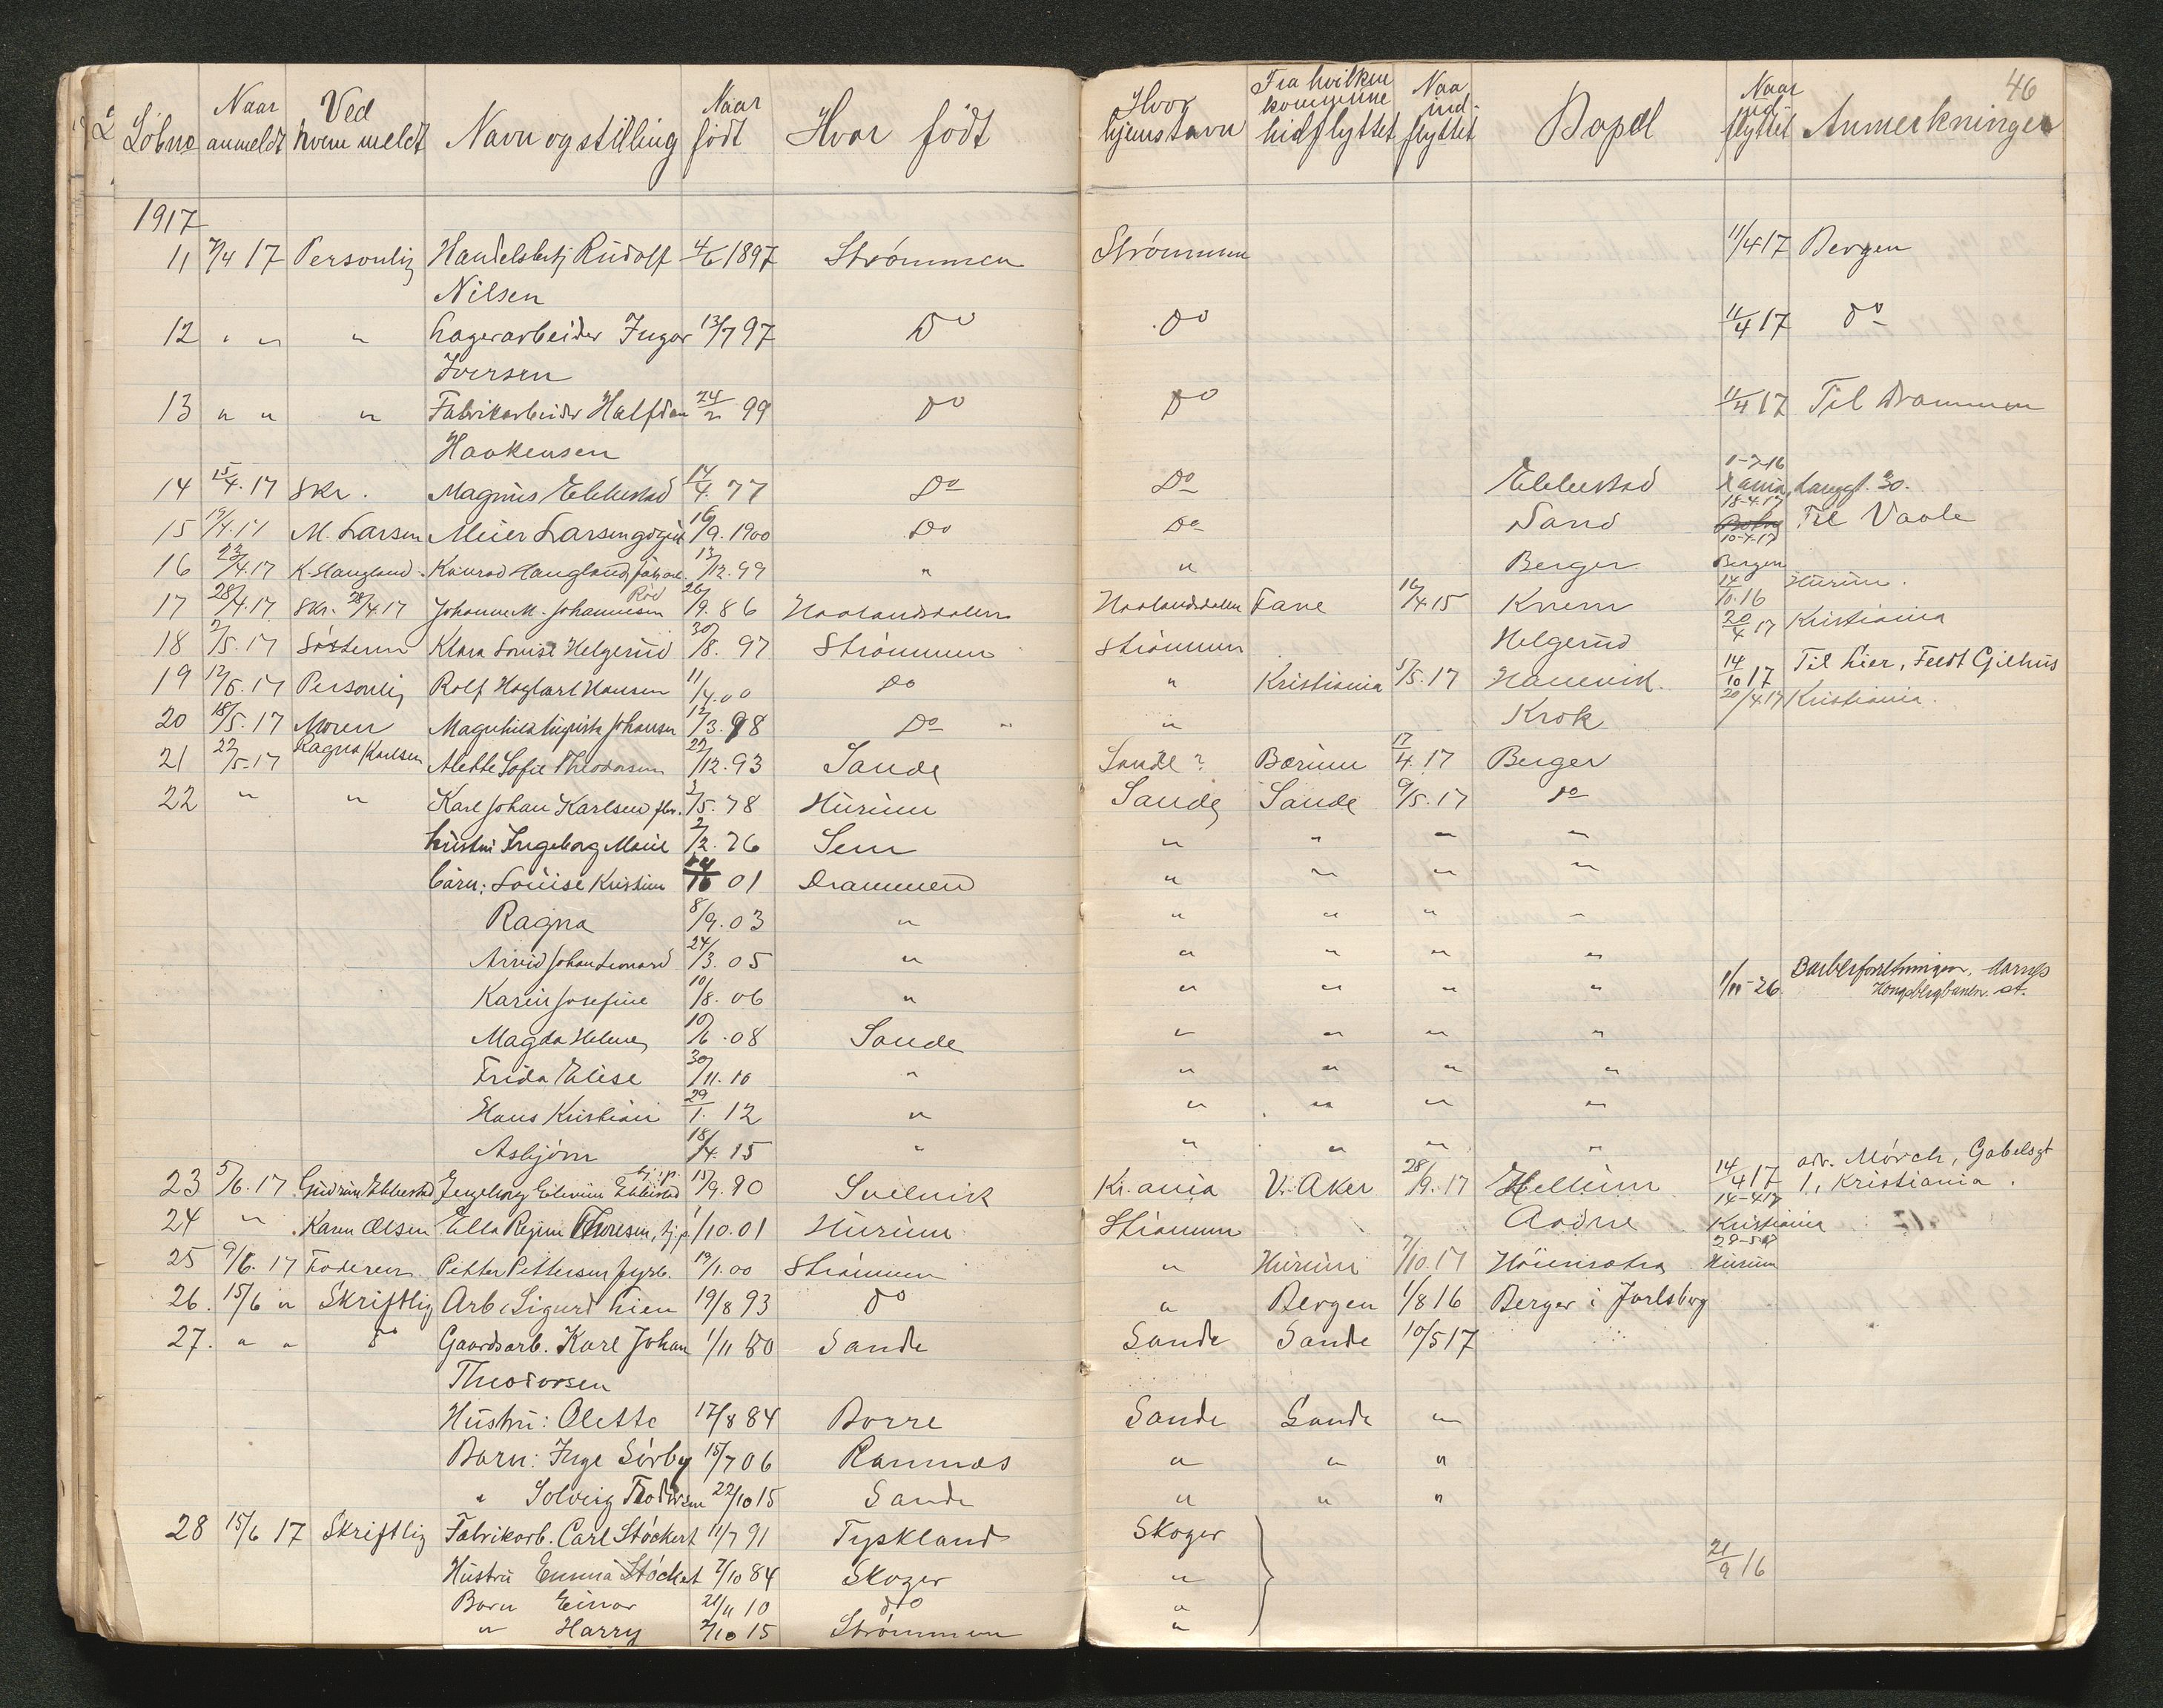 46
Löbno Naar anmeldt Ved hvem meldt Navn og stilling Naar födt Hvor födt Hvor hjemstavn Fra hvilken kommune hidflyttet Naa ind-flyttet Bopel Naar ud-flyttet Anmerkninger
1917
11 7/4 17 Personlig Handelsbetj Rudolf 4/6 1897 Strömmen Strömmen 11/4 17 Bergen
Nilsen
12 " " " Lagerarbeider Ingar 13/7 97 Do Do 11/4 17 Do
Iversen
13 " " " Fabrikarbeider Halfdan 24/2 99 Do Do 11/4 17 Til Drammen
Haakensen
14 15/4.17 Skr. Magnus Ebbestad 14/4.77 Do Do Ebbestad 1-7-16 Kania, Langgt. 30.
15 19/4.17 M. Larsen Meier Larsen 16/9.1900 Do Do Sand 18-4-17 Til Vaale
16 23/4.17 K. Haugland Konrad Haugland, 13/12.99 " " Berger 10-4-17 Bergen
17 28/4.17 Skr. 28/4 17 Johanne M. Johannesen Röd 26/9.86 Haalandsdalen Haalandsdalen Fane 16/4 15 Knem 14/10.16 Hurum.
18 2/5.17 Sösteren Klara Lovise Helgerud 30/8.97 Strömmen Strömmen Helgerud 20/4 17 Kristiania
19 12/5.17 Personlig Rolf Hagbart Hansen 11/4.00 Do " Kristiania 5/5.17 Hanevik 14/10 17 Til Lier, Feldt Gilhus
20 18/5.17 Moren Magnhild Augusta Johansen 12/3.98 Do " " Krok 20/4 17 Kristiania.
21 22/5.17 Ragna Karlsen Alette Sofie Theodorsen 22/12.93 Sande Sande? Bærum 17/4.17 Berger
22 " " Karl Johan Karlsen fbr. 2/5.78 Hurum Sande Sande 9/5.17 Do
hustru Ingeborg Marie 2/2.76 Sem " " " "
barn: Louise Kristine 01 Drammen " " " "
Ragna 8/9.03 " " " " "
Arvid Johan Leonard 24/3.05 " " " " "
Karin Josefine 10/8.06 " " " " " 1/11-26. Barberforretningen, Kongsbergbanen st.
Magda Helene 10/6.08 Sande " " " "
Frida Elise 30/11.10 " " " " "
Hans Kristian 29/1.12 " " " " "
Asbjörn 18/4.15 " " " " "
23 5/6.17 Gudrun Ebbestad Ingeborg Elevine Ebbestad tj.p. 15/9.90 Svelvik Kr.ania V. Aker 28/9.17 Hellum 14/4 17 adv. Mörch, Gabelsgt
1, Kristiania.
24 " Karen Olsen Ella Regine Thoresen, tj.p. 1/10.01 Hurum Strömmen Aodne 14-4-17 Kristiania
25 9/6.17 Faderen Petter Pettersen fyrb. 19/1.00 Strömmen " Hurum 7/10.17 28-5-17 Hurum
26. 15/6 " Skriftlig Arb. Sigurd Lien 19/8 93 Do " Bergen 1/8 16 Berger i Jarlsberg
27. " " Do Gaardsarb. Karl Johan 1/11 80 Sande Sande Sande 10/5 17
Theodorsen
Hustru: Olette 17/8 84 Borre Sande Sande "
Barn: Inge Sörby 15/7 06 Ramnæs " " "
" Solveig Teodorsen 22/10 15 Sande " " "
28 15/6 17 Skriftlig Fabrikarb. Carl Stöckert 11/7 91 Tyskland Skoger
Hustru Emma Stöckert 7/10 84 Skoger " 21/9 16
Barn Einar 21/11 10 do "
" Harry 7/10 15 Strömmen "